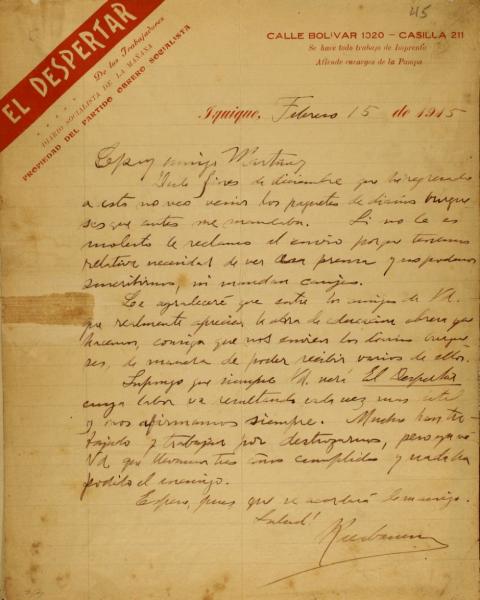 45
EL DESPERTAR
De los Trabajadores
DIARIO SOCIALISTA DE LA MAÑANA
PROPIEDAD DEL PARTIDO OBRERO SOCIALISTA
CALLE BOLIVAR 1020 – CASILLA 211
Se hace todo trabajo de Imprenta
Atiende encargos de la Pampa
Iquique, Febrero 15 de 1915
amigo Martinez
Desde fines de diciembre que he regresado
a esta no veo venir los paquetes de diarios burgue
ses que antes me mandaba. Si no le es
molesto le reclamo el envio porque tenemos
relativa necesidad de ver esa prensa y no podemos
suscribirnos, ni mandan canjes.
Le agradeceré que entre los amigos de Vd.
que realmente aprecien la obra de educacion obrera que
hacemos, consiga que nos envien los diarios burgue
ses, de manera de poder recibir varios de ellos.
Supongo que siempre Vd. verá El Despertar
cuya labor va resultando cada vez mas util
y nos afirmamos siempre. Mucho han tra
bajado y trabajan por destruirnos, pero ya ve
Vd que llevamos tres años cumplidos y nada ha
podido el enemigo.
Espero, pues que se acordará
Salud!